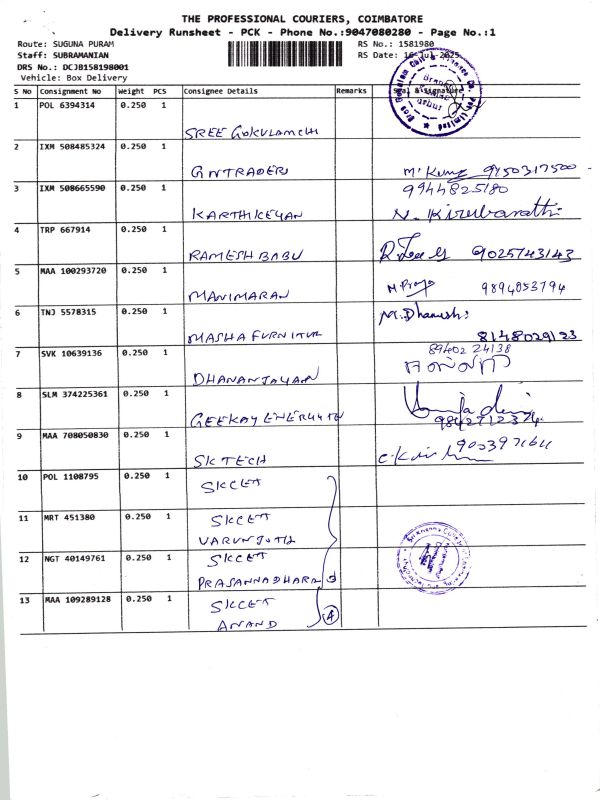 THE PROFESSIONAL COURIERS, COIMBATORE
Delivery Runsheet - PCK - Phone No.:9047080280 - Page No.:1
Route: SUGUNA PURAM
RS No.: 1581980
Staff: SUBRAMANIAN
RS Date: 16-Jul-2025
DRS No.: DCJB158198001
Vehicle: Box Delivery
S No Consignment No Weight PCS Consignee Details Remarks Seal & Signature
1 POL 6394314 0.250 1
SREE GOKULAMCHI
2 IXM 508485324 0.250 1
GNTRADERS 9750317500
3 IXM 508665590 0.250 1 9944825180
KARTHIKEYAN N. Kirubarathi
4 TRP 667914 0.250 1
RAMESH BABU 9025743143
5 MAA 100293720 0.250 1
MANIMARAN 9894853794
6 TNJ 5578315 0.250 1 M.Dhanush:
MASHA FURNITUR 8148029123
7 SVK 10639136 0.250 1 89402 24138
DHANANJAYAN
8 SLM 374225361 0.250 1
GEEKAY ENERGY 9842712374
9 MAA 708050830 0.250 1
SK TECH
10 POL 1108795 0.250 1
SKCET
11 MRT 451380 0.250 1
SKCET
VARUN JOTI
12 NGT 40149761 0.250 1
SKCET
PRASANNADHARA
13 MAA 109289128 0.250 1
SKCET
ANAND 4